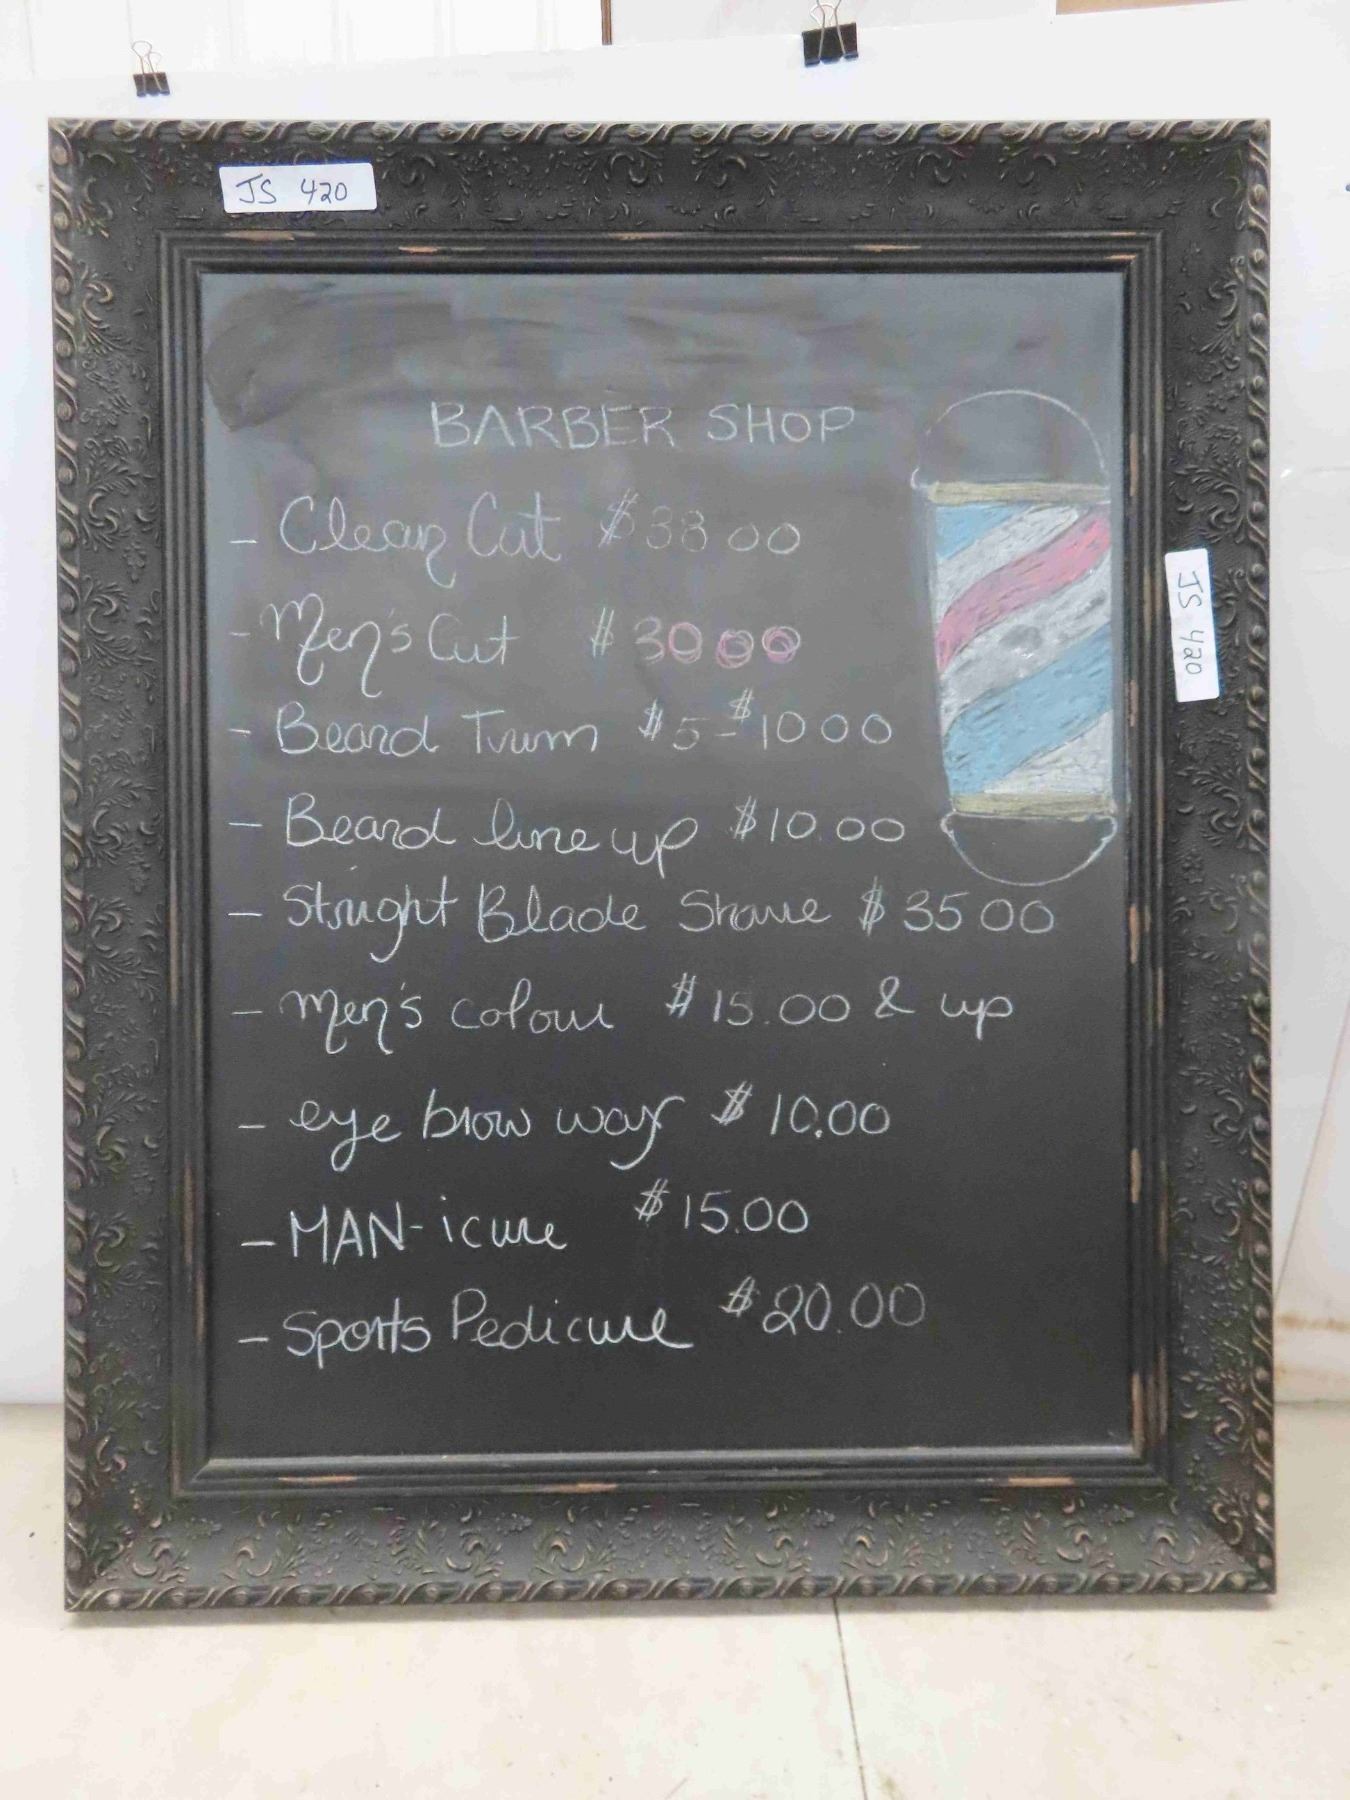 JS 420
BARBER SHOP
- Clean Cut $38 00
- Men's Cut $30 00
- Beard Trim $5 - $10 00
- Beard line up $10.00
- Straight Blade Shave $35 00
- men's colour $15.00 & up
- eye brow wax $10.00
- MAN-icure $15.00
- Sports Pedicure $20.00
JS 420